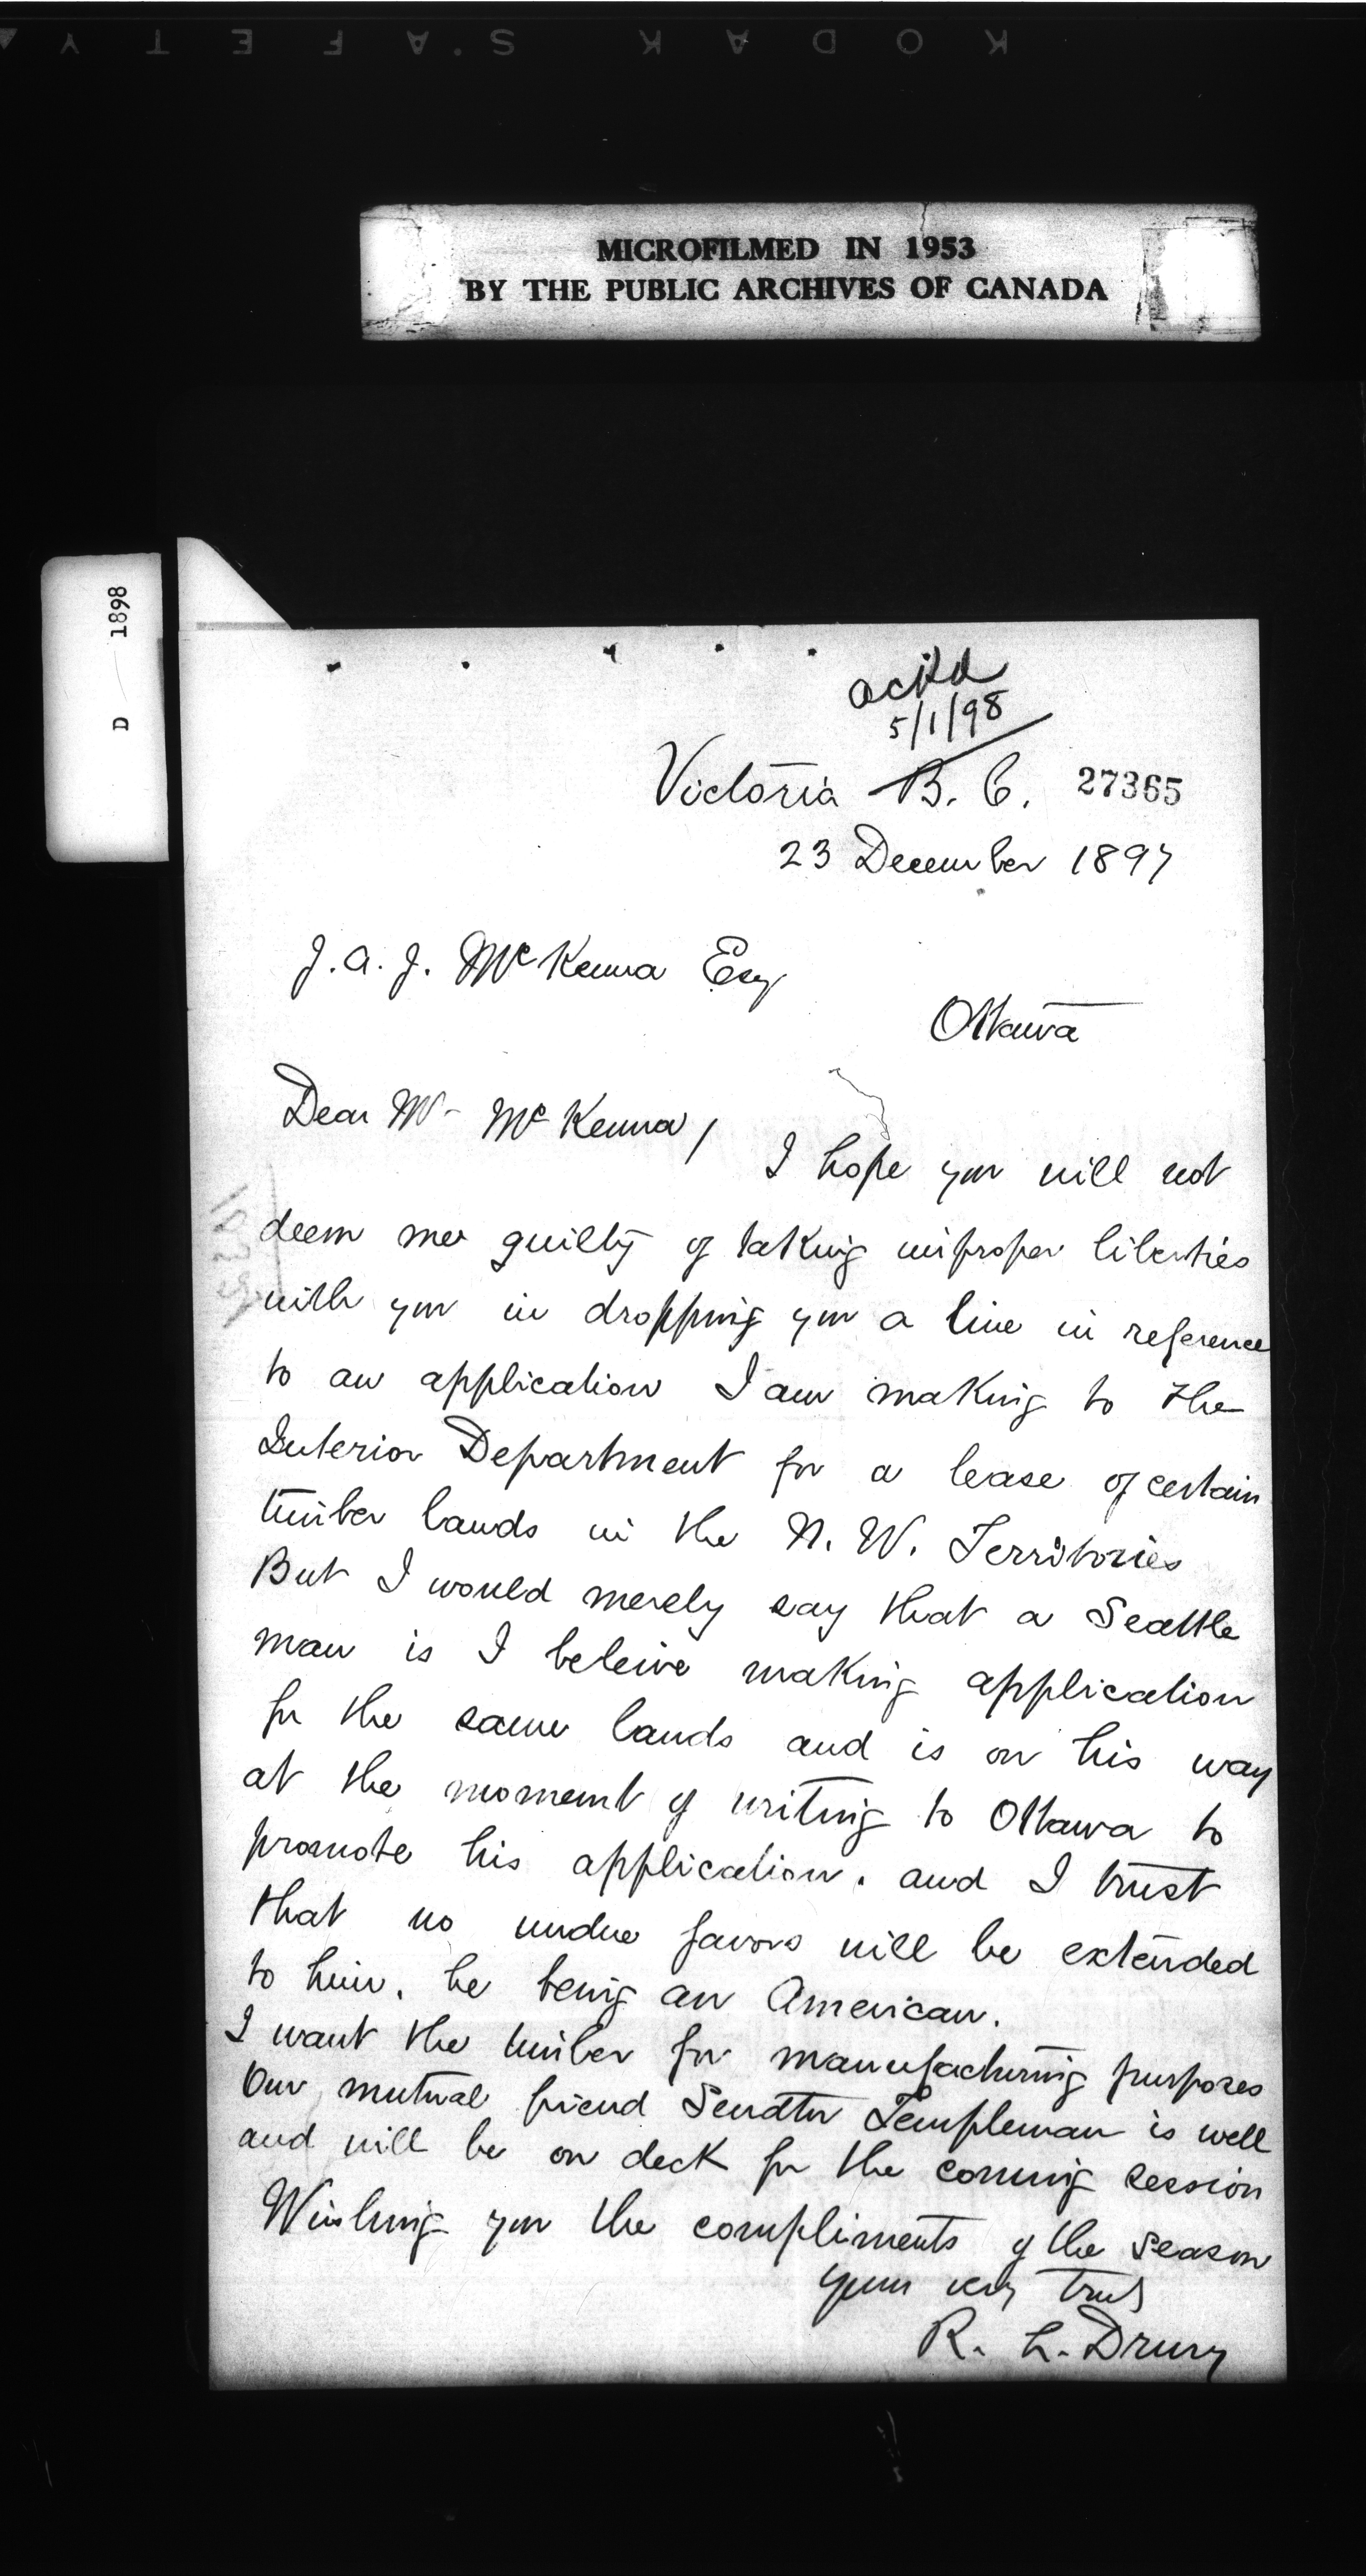 KODAK S.A F E T Y
MICROFILMED IN 1953
BY THE PUBLIC ARCHIVES OF CANADA
D 1898
ackd
5/1/98
Victoria B. C. 27365
23 December 1897
J. A. J. McKenna Esq
Ottawa
Dear Mr McKenna,
I hope you will not
deem me guilty of taking improper liberties
with you in dropping you a line in reference
to an application I am making to the
Interior Department for a lease of certain
timber lands in the N. W. Territories
But I would merely say that a Seattle
man is I beleive making application
for the same lands and is on his way
at the moment of writing to Ottawa to
promote his application. and I trust
that no undue favors will be extended
to him, he being an American.
I want the timber for manufacturing purposes
Our mutual friend Senator Templeman is well
and will be on deck for the coming session
Wishing you the compliments of the season
Yours very truly
R. L. Drury